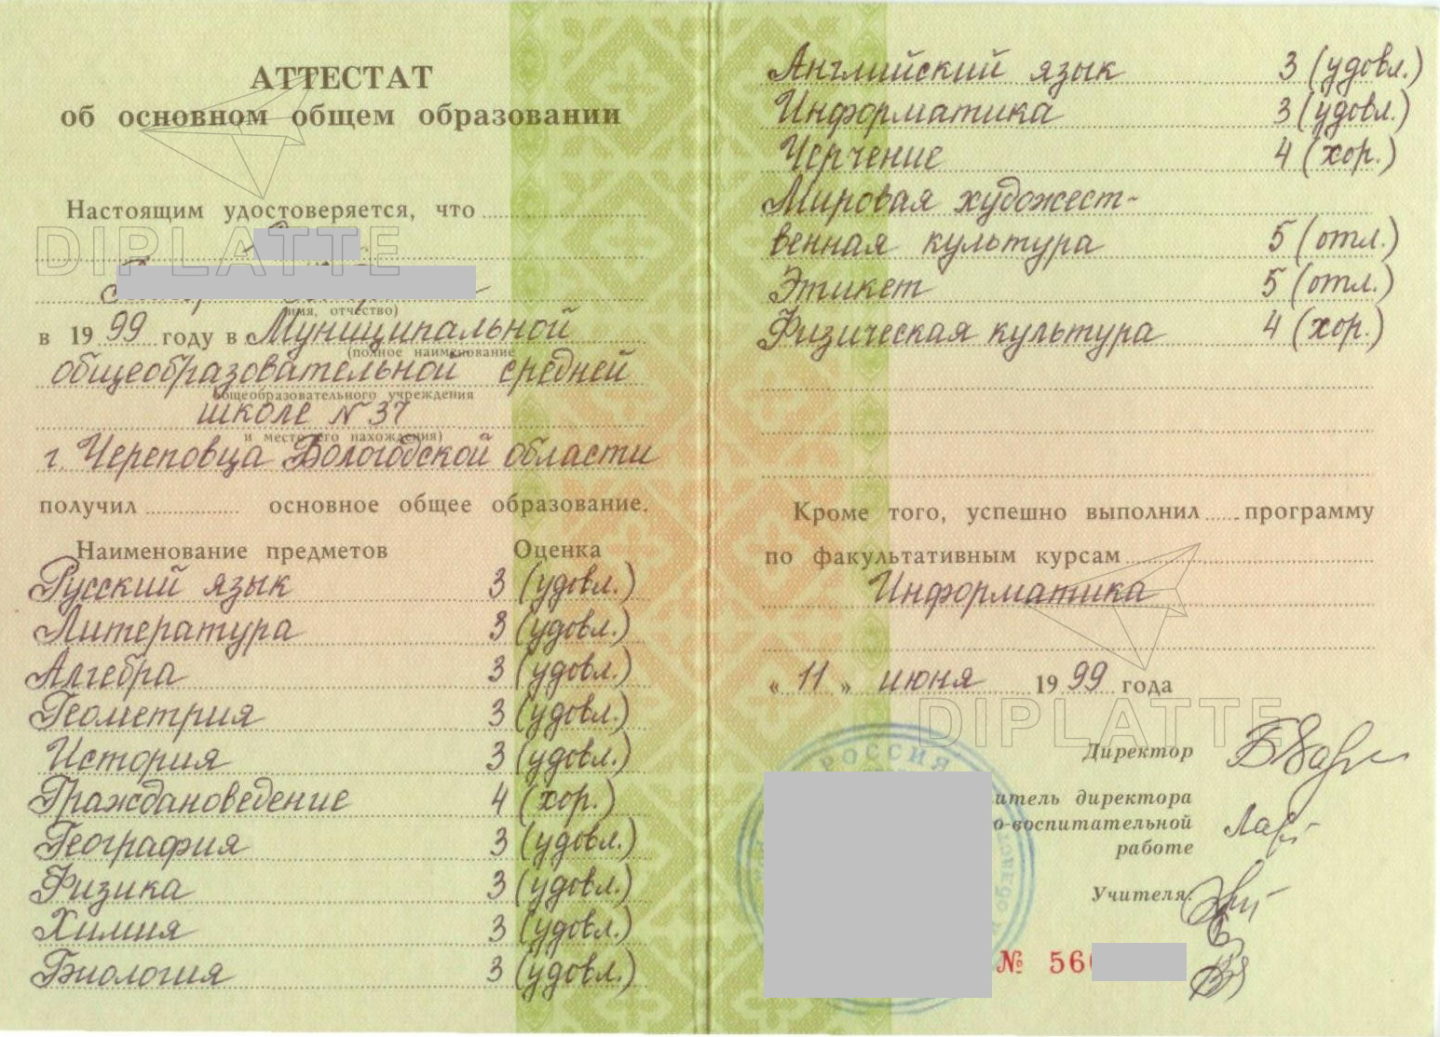 АТТЕСТАТ
об основном общем образовании
Настоящим удостоверяется, что
DIPLATTE
имя, отчество)
в 1999 году в Муниципальной
(полное наименование
общеобразовательной средней
общеобразовательного учреждения
школе № 37
и место его нахождения)
г. Череповца Вологодской области
получил основное общее образование.
Наименование предметов Оценка
Русский язык 3 (удовл.)
Литература 3 (удовл.)
Алгебра 3 (удовл.)
Геометрия 3 (удовл.)
История 3 (удовл.)
Граждановедение 4 (хор.)
География 3 (удовл.)
Физика 3 (удовл.)
Химия 3 (удовл.)
Биология 3 (удовл.)
Английский язык 3 (удовл.)
Информатика 3 (удовл.)
Черчение 4 (хор.)
Мировая художест-
венная культура 5 (отл.)
Этикет 5 (отл.)
Физическая культура 4 (хор.)
Кроме того, успешно выполнил программу
по факультативным курсам
Информатика
« 11 » июня 1999 года
DIPLATTE
РОССИЯ
Директор
итель директора
о-воспитательной
работе
Учителя
№ 56